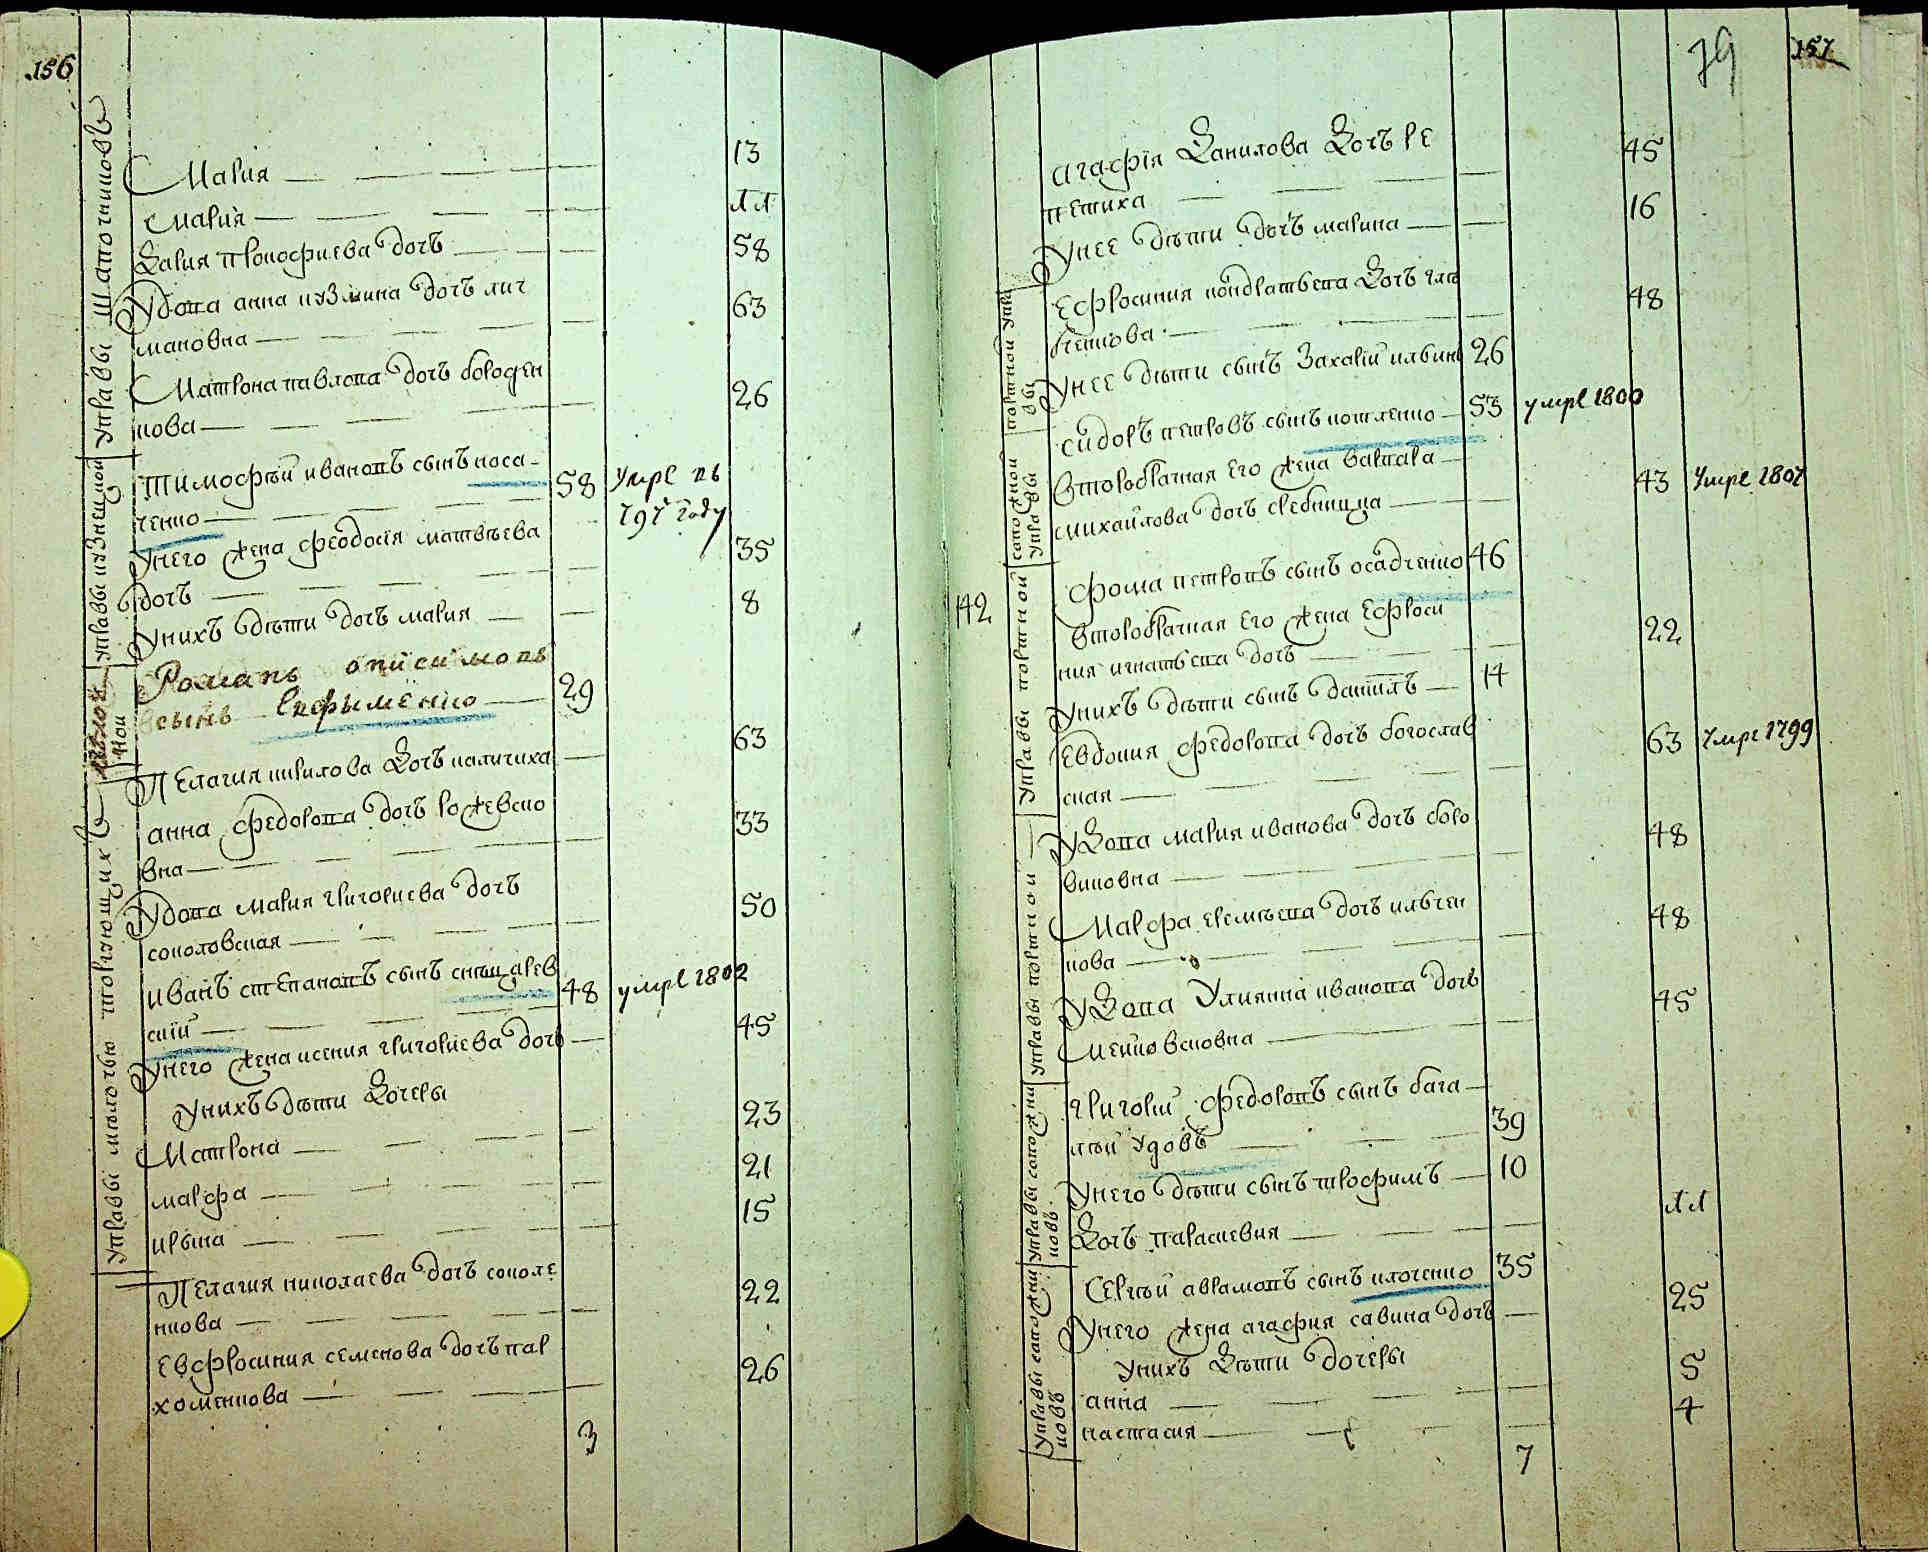 156
управы шапочниковъ
Мария 13
мария
Дария прокофиева дочъ 58
Удова анна кузмина дочъ лич
мановна 63
Матрона павлова дочъ бороден
кова 26
управы кузнецкой
Тимофѣй ивановъ сынъ носа-
ченко 58 умре въ
797 году
Унего жена феодосія матвѣева
дочъ 35
Унихъ дѣти дочъ мария 8
Романъ
сынъ Ефыменко 29
Пелагия кирилова дочъ каличиха 63
анна федорова дочъ рожевско
вна 33
управы мѣлочью торгующихъ
Удова мария григориева дочъ
соколовская 50
иванъ степановъ сынъ снѣцарев
скій 48 умре 1802
Унего жена ксения григориева дочъ 45
Унихъ дѣти дочеры
Матрона 23
марфа 21
ирына 15
Пелагия николаева дочъ соколе
нкова 22
Евфросиния семенова дочъ пар
хоменкова 26
3
79
157
агафія Данилова дочъ ре
петиха 45
Унее дѣти дочъ марина 16
управы портной
Ефросиния кондратьева дочъ
48
Унее дѣти сынъ Захарій 26
управы сапожной
сидоръ петровъ сынъ котленко 53 умре 1800
второбрачная его жена варвара
михайлова дочъ 43 умре 1801
управы портной
142
Фома петровъ сынъ осадченко 46
второбрачная его жена Ефроси
ния игнатьева дочъ 22
Унихъ дѣти сынъ даниилъ 14
Евдокия федорова дочъ богослав
ская 63 умре 1799
управы портной
Удова мария иванова дочъ боро
виковна 48
Марфа еремѣева дочъ илчен
кова 48
Удова Улиянна иванова дочъ
45
управы сапожни
ковъ
григорій федоровъ сынъ бага-
тый удовъ 39
Унего дѣти сынъ трофимъ 10
Дочъ параскевия
управы сапожни
ковъ
Сергѣй аврамовъ сынъ клоченко 35
Унего жена агафия савина дочъ 25
Унихъ дѣти дочеры
анна 5
настасия 4
7